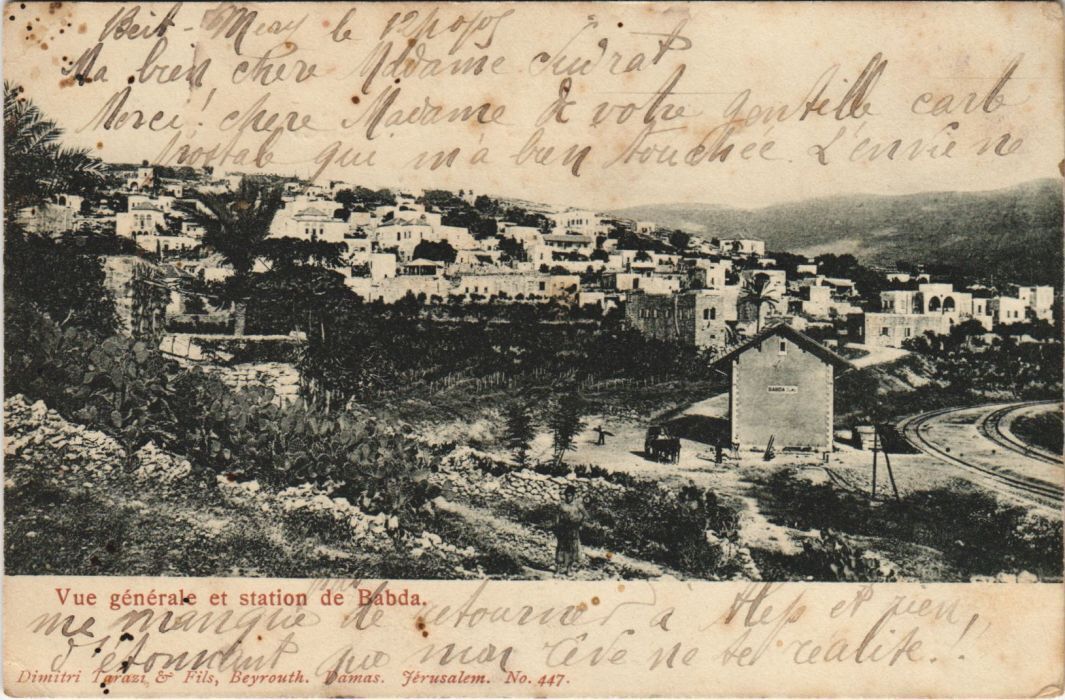 Beit-Mery le 12/9/05
Ma bien chere Madame Sudrat
Merci! chere Madame de votre gentille carte
postale qui m'a bien touchée. L'envie ne
BABDA
Vue générale et station de Babda.
me manque de retourner à Alep et rien
d'étonnant que mon rêve ne set realité.!
Dimitri Tarazi & Fils, Beyrouth. Damas. Jérusalem. No. 447.